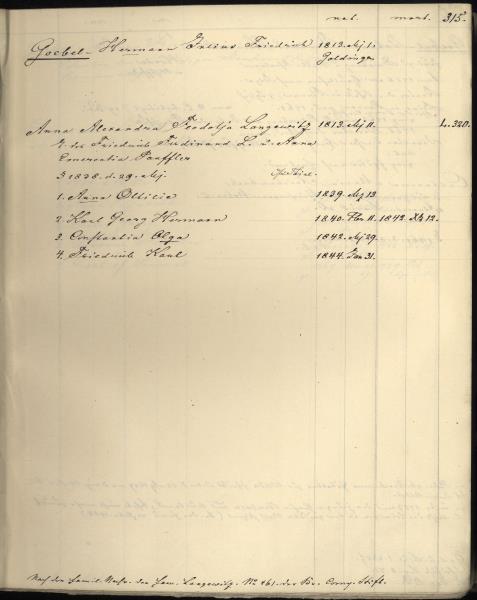 nat. mort. 315.
Goebel - Hermann Julius Friedrich 1813. Mj 1.
Goldingen
Anna Alexandra Feodolja Langewitz 1813. Mj 11. L. 320.
T. des Friedrich Ferdinand L. u. Anna
Emerentia Panffler
1838. d. 29. Mj.
1. Anna Ottilie 1839. Mj 13
2. Karl Georg Hermann 1840. Fbr 11. 1842. Xb 12.
3. Constantia Olga 1842. Mj 29.
4. Friedrich Karl 1844. Jan 31.
Nach den Famil. Nachr. der Fam. Langewitz. No 461. der Stift.